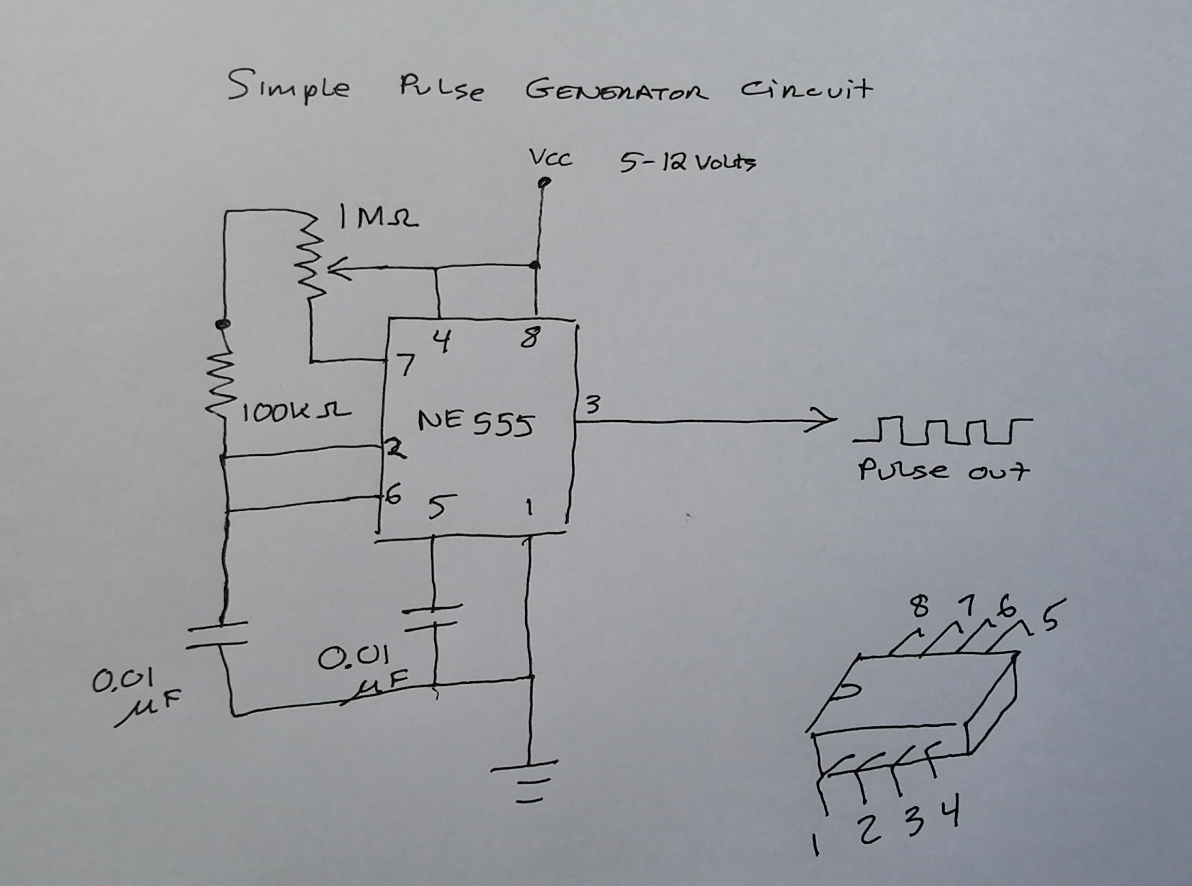 Simple Pulse GENERATOR Circuit
Vcc 5-12 Volts
1MΩ
4 8
7
100kΩ
NE555
3
2
Pulse out
6
5 1
0.01
μF
0.01
μF
8 7 6 5
1 2 3 4